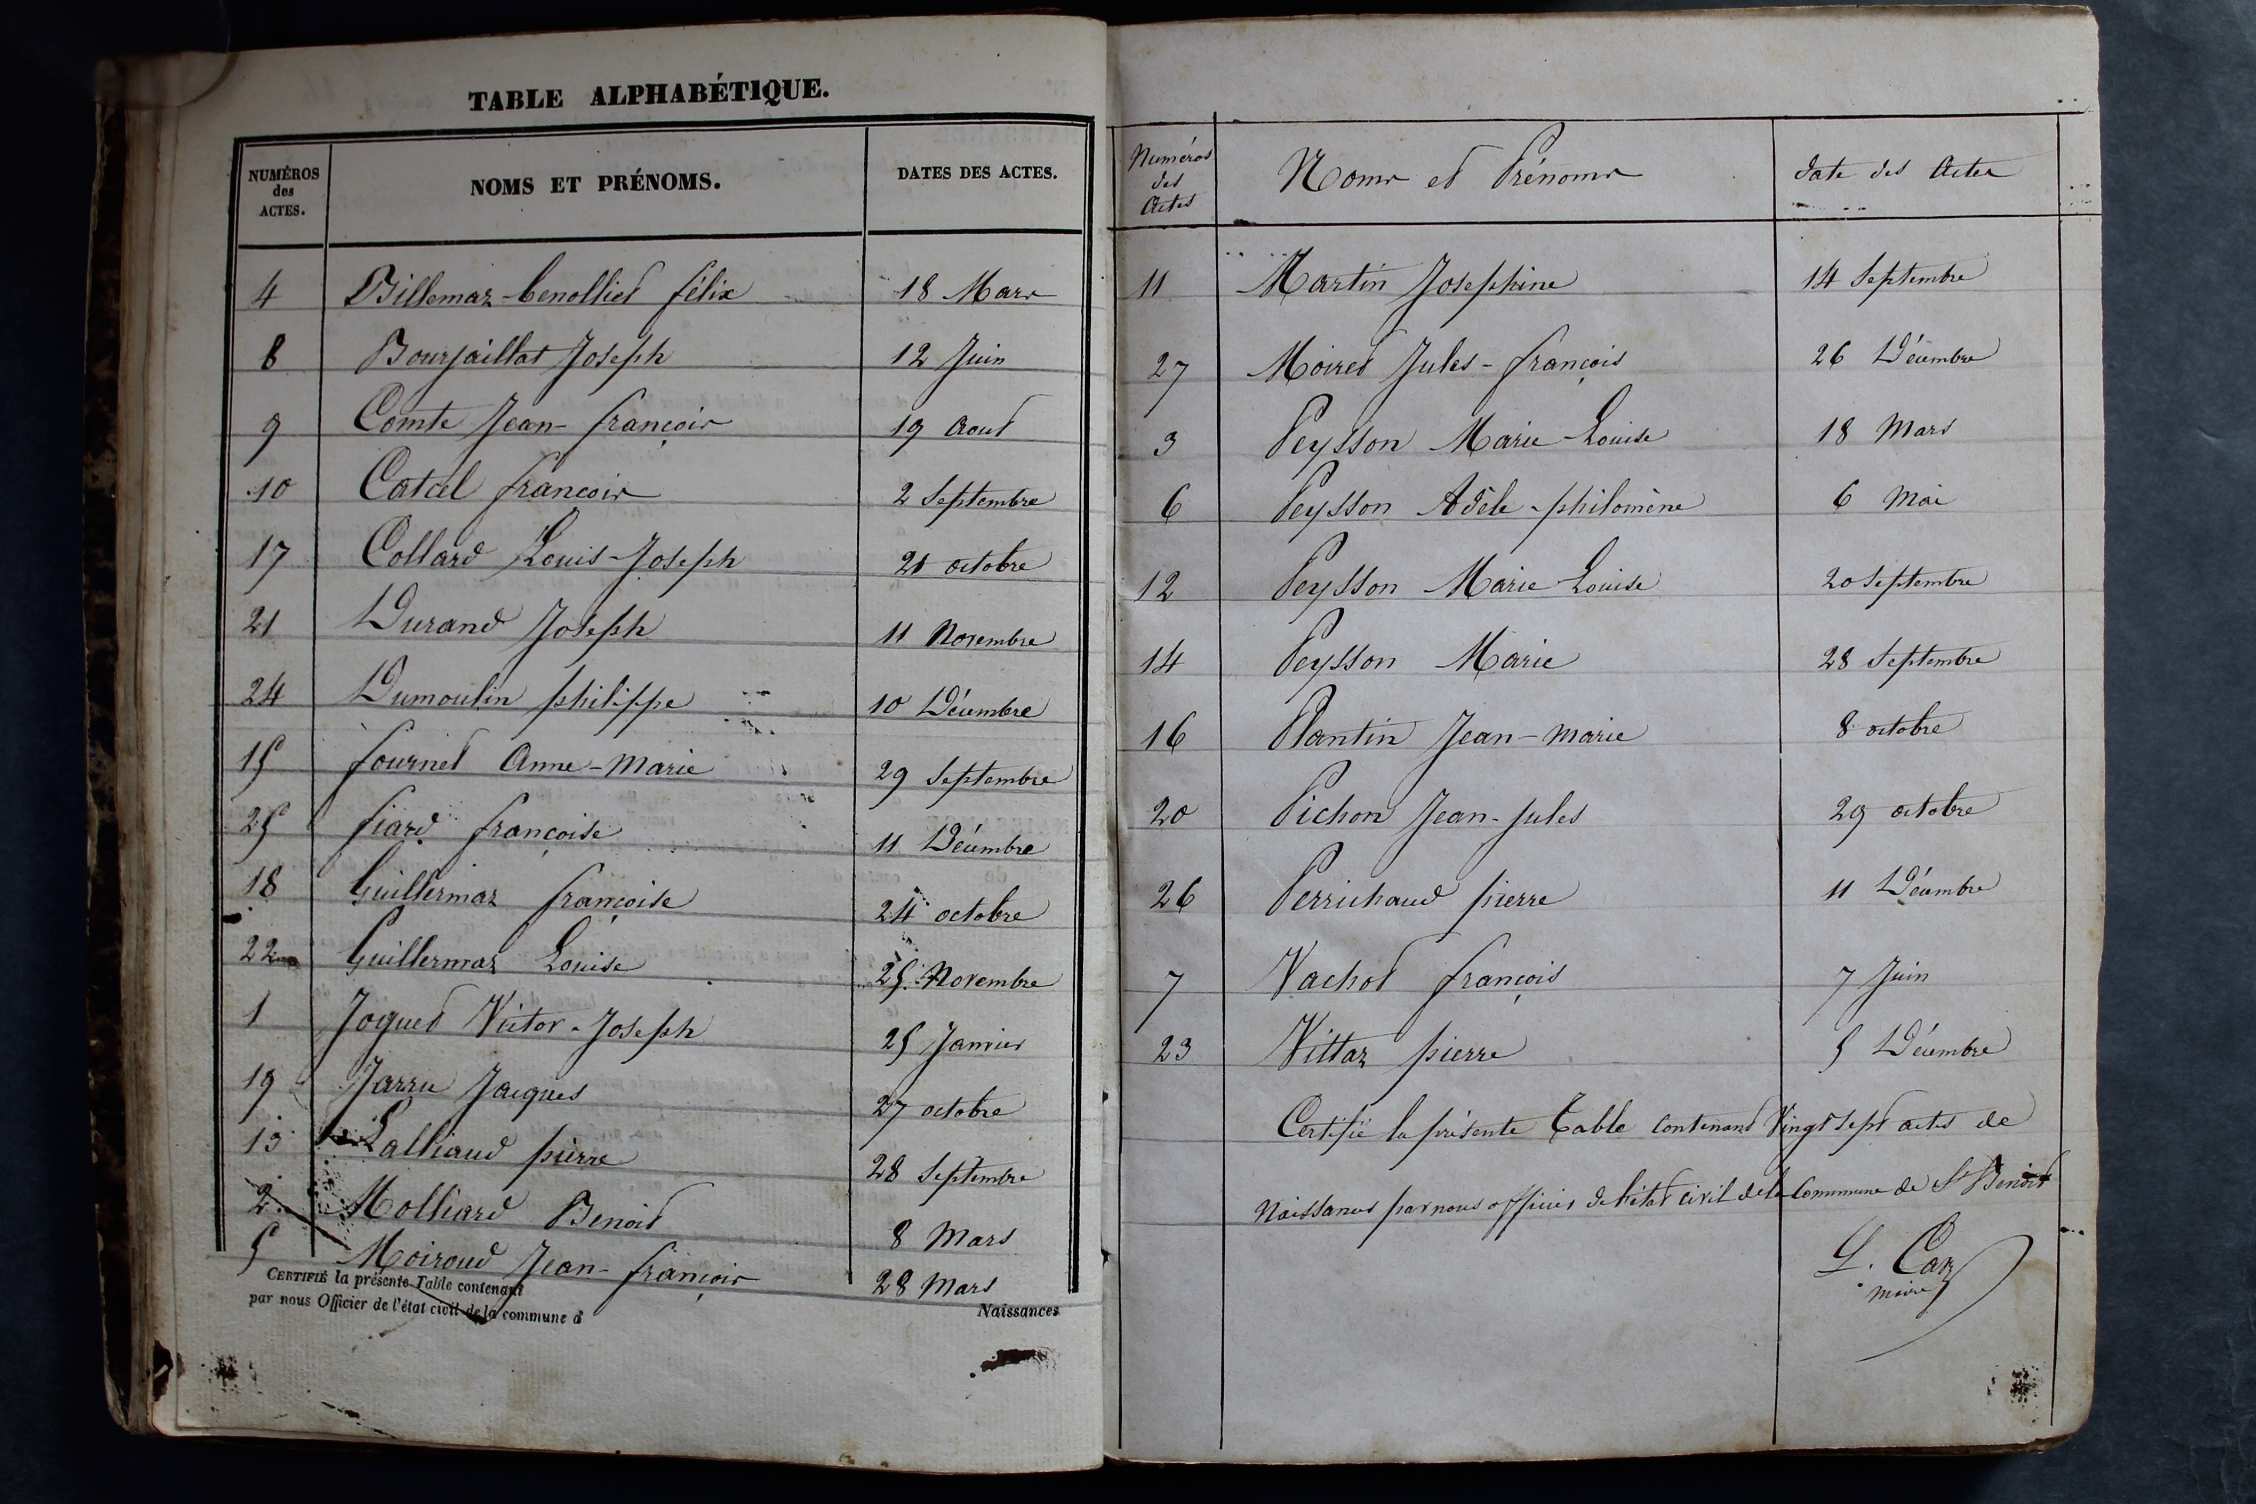 TABLE ALPHABÉTIQUE.
NUMÉROS des ACTES. NOMS ET PRÉNOMS. DATES DES ACTES.
4 Billemaz-Cenolliet félix 18 Mars
8 Bourjaillat Joseph 12 Juin
9 Comte Jean-françois 19 Aout
10 Catcel françois 2 Septembre
17 Collard Louis-Joseph 21 octobre
21 Durand Joseph 11 Novembre
24 Dumoulin philippe 10 Décembre
15 fournet Anne-Marie 29 Septembre
25 fiard françoise 11 Décembre
18 Guillermaz françoise 24 octobre
22 Guillermaz Louise 25 Novembre
1 Joguet Victor-Joseph 25 Janvier
19 Jarru Jacques 27 octobre
13 Lalliaud pierre 28 Septembre
2 Molliard Benoit 8 Mars
5 Moiroud Jean-françois 28 Mars
CERTIFIÉ la présente Table contenant Naissances
par nous Officier de l'état civil de la commune d
Numéros des Actes Noms et Prénoms date des Actes
11 Martin Josephine 14 Septembre
27 Moiret Jules-françois 26 Décembre
3 Peysson Marie-Louise 18 Mars
6 Peysson Adèle-philomène 6 Mai
12 Peysson Marie Louise 20 Septembre
14 Peysson Marie 28 Septembre
16 Plantin Jean-Marie 8 octobre
20 Pichon Jean-Jules 29 octobre
26 Perrichaud pierre 11 Décembre
7 Vachot françois 7 Juin
23 Vittaz pierre 5 Décembre
Certifié la présente Table contenant Vingt sept actes de
Naissances par nous officier de l'état civil de la Commune de St Benoit
L. Caz
maire